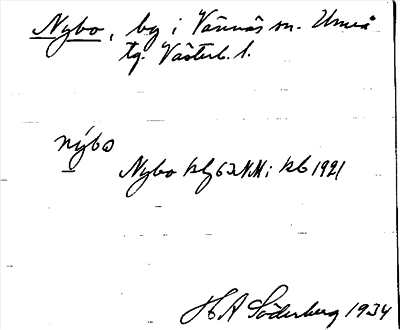 Nybo, by i Vännäs sn. Umeå
tg. Västerb. l.
nýbo
Nybo kbl 62 NM i kb 1921
H A Söderberg 1934